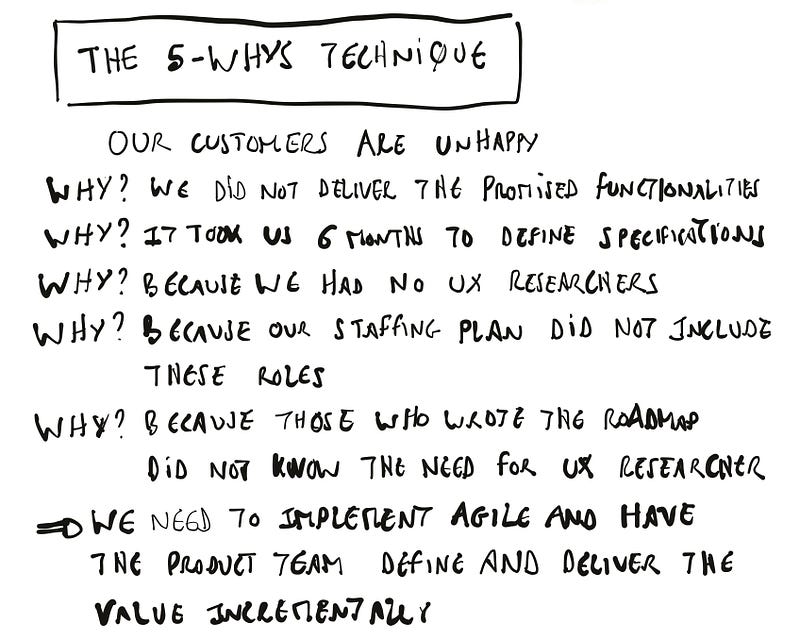 THE 5-WHYS TECHNIQUE
OUR CUSTOMERS ARE UNHAPPY
WHY? WE DID NOT DELIVER THE PROMISED FUNCTIONALITIES
WHY? IT TOOK US 6 MONTHS TO DEFINE SPECIFICATIONS
WHY? BECAUSE WE HAD NO UX RESEARCHERS
WHY? BECAUSE OUR STAFFING PLAN DID NOT INCLUDE
THESE ROLES
WHY? BECAUSE THOSE WHO WROTE THE ROADMAP
DID NOT KNOW THE NEED FOR UX RESEARCHER
⇒ WE NEED TO IMPLEMENT AGILE AND HAVE
THE PRODUCT TEAM DEFINE AND DELIVER THE
VALUE INCREMENTALLY